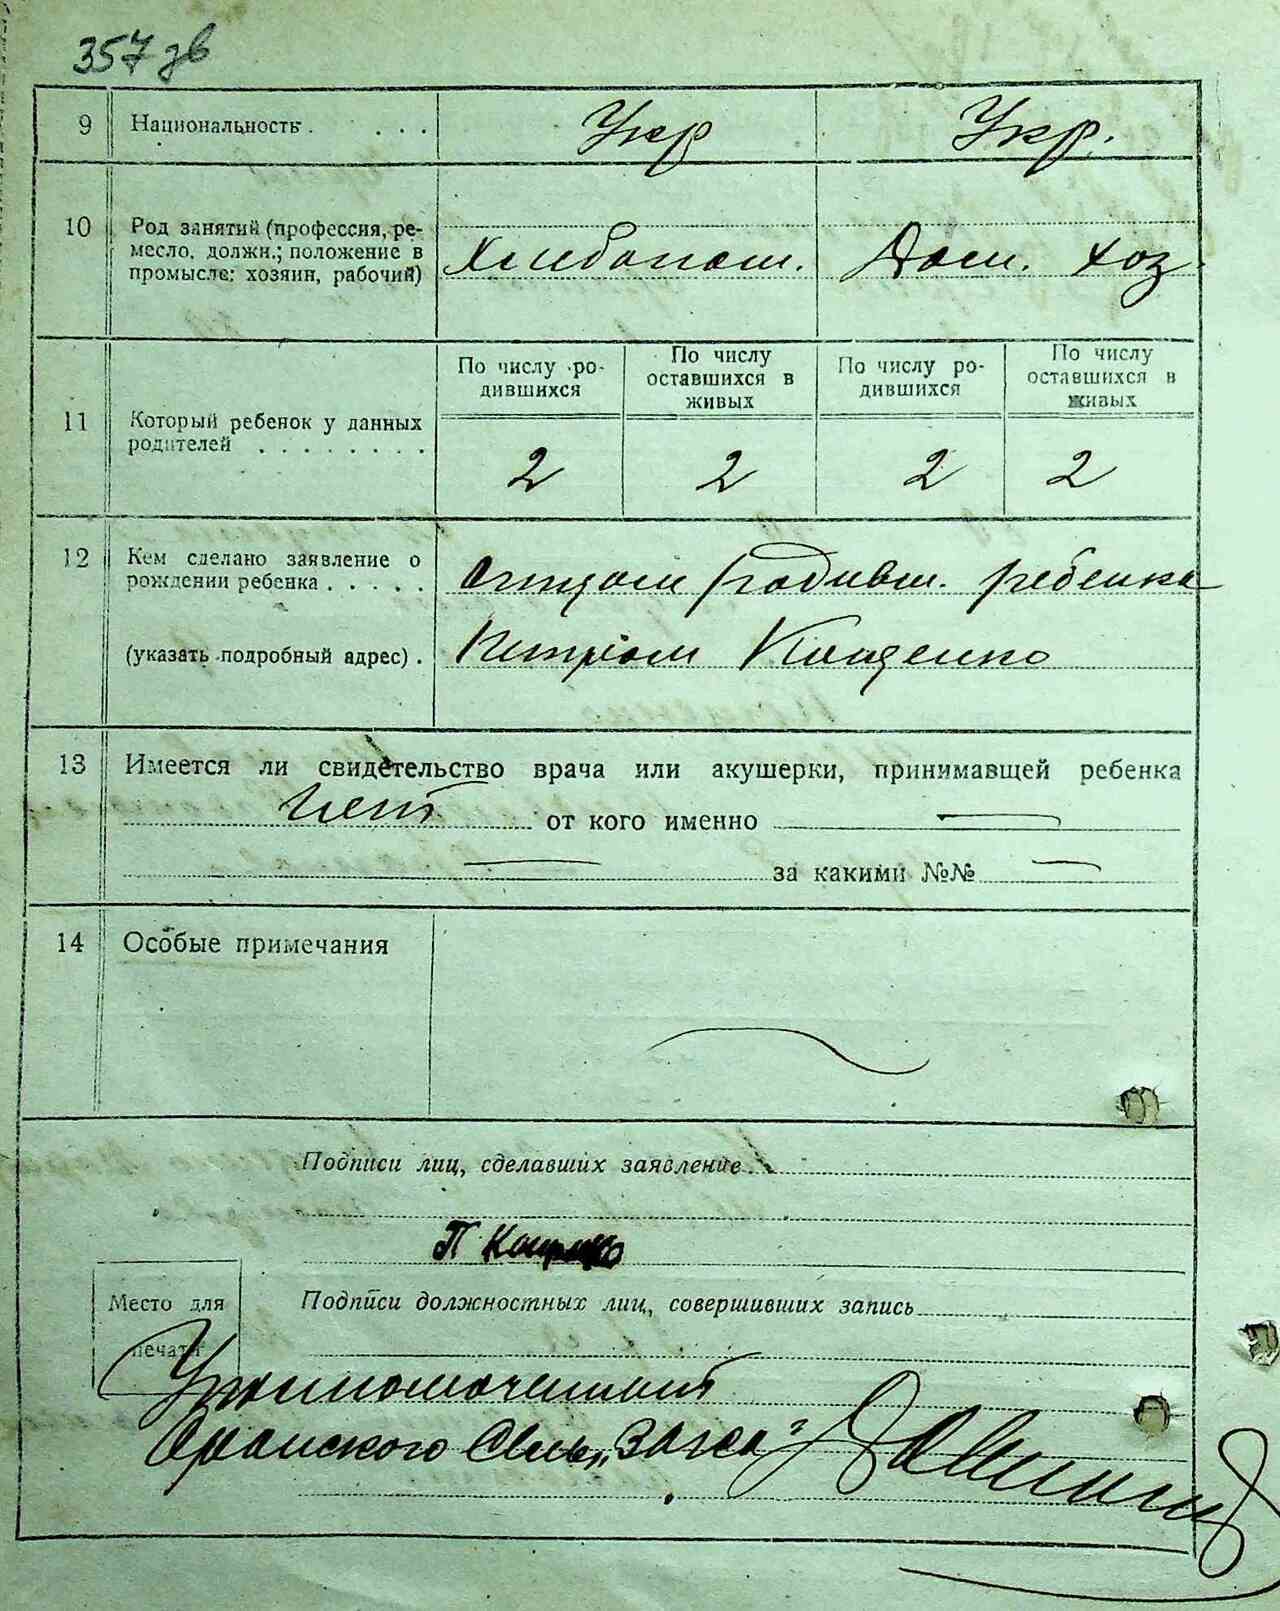 357 зв
9 Национальность . . . . Укр Укр.
10 Род занятий (профессия, ре-
месло, должн.; положение в
промысле: хозяин, рабочий) Хлибопаш. Дом. хоз.
По числу ро-
дившихся
По числу
оставшихся в
живых
По числу ро-
дившихся
По числу
оставшихся в
живых
11 Который ребенок у данных
родителей . . . . . . . . 2 2 2 2
12 Кем сделано заявление о
рождении ребенка . . . . . Отцом родивш. ребенка
(указать подробный адрес) . Петром
13 Имеется ли свидетельство врача или акушерки, принимавшей ребенка
Нет от кого именно —
— за какими №№ —
14 Особые примечания
Подписи лиц, сделавших заявление
П
Подписи должностных лиц, совершивших запись
Место для
печати
Уполномоченный
Сельс. Загса